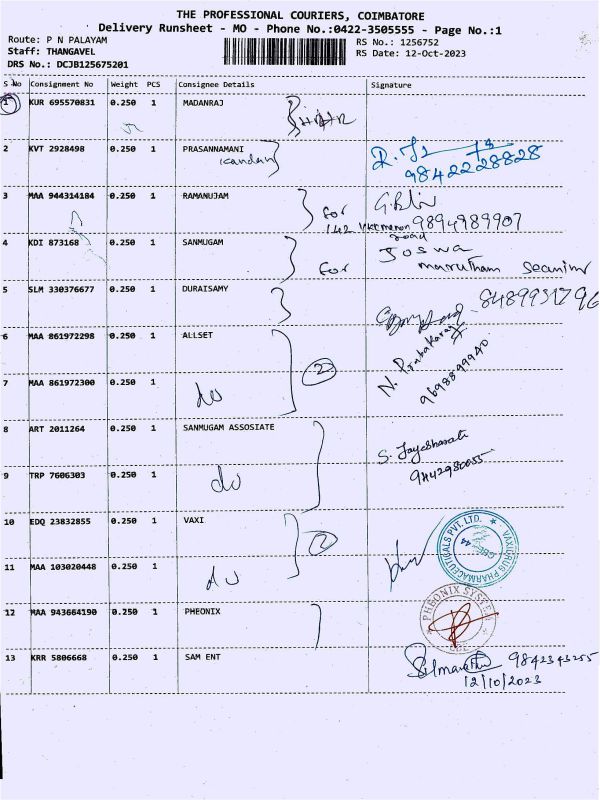 THE PROFESSIONAL COURIERS, COIMBATORE
Delivery Runsheet - MO - Phone No.:0422-3505555 - Page No.:1
Route: P N PALAYAM
RS No.: 1256752
Staff: THANGAVEL
RS Date: 12-Oct-2023
DRS No.: DCJB125675201
S No Consignment No Weight PCS Consignee Details Signature
1 KUR 695570831 0.250 1 MADANRAJ
2 KVT 2928498 0.250 1 PRASANNAMANI
kandan
9842228828
3 MAA 944314184 0.250 1 RAMANUJAM
for
142 9894989907
road
4 KDI 873168 0.250 1 SANMUGAM
Joswa
for marutham
5 SLM 330376677 0.250 1 DURAISAMY
8489931796
6 MAA 861972298 0.250 1 ALLSET
2
N. Prabakaran
9698899940
7 MAA 861972300 0.250 1
do
8 ART 2011264 0.250 1 SANMUGAM ASSOSIATE
S. Jayabharati
9442980055
9 TRP 7606303 0.250 1
do
10 EDQ 23832855 0.250 1 VAXI
2
VAXIDRUG PHARMACEUTICALS PVT. LTD.
CBE - 44
11 MAA 103020448 0.250 1
do
12 MAA 943664190 0.250 1 PHEONIX
PHEONIX SYSTEM
13 KRR 5806668 0.250 1 SAM ENT
9842343255
12/10/2023